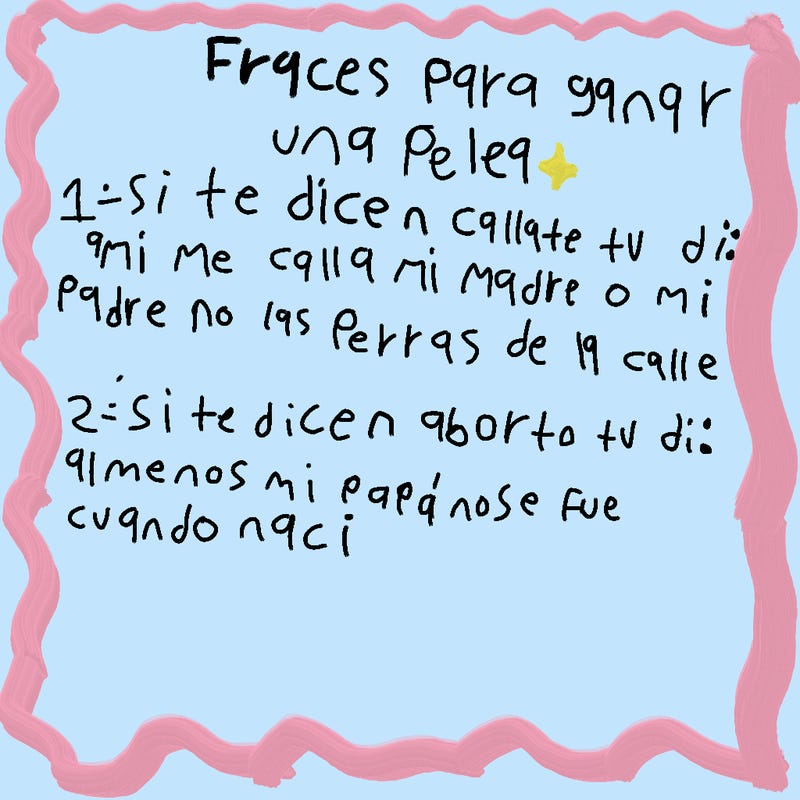 Fraces para ganar
una Pelea
1÷si te dicen callate tu di:
ami me calla mi madre o mi
padre no las Perras de la calle
2÷si te dicen aborto tu di:
almenos mi papá nose fue
cuando naci